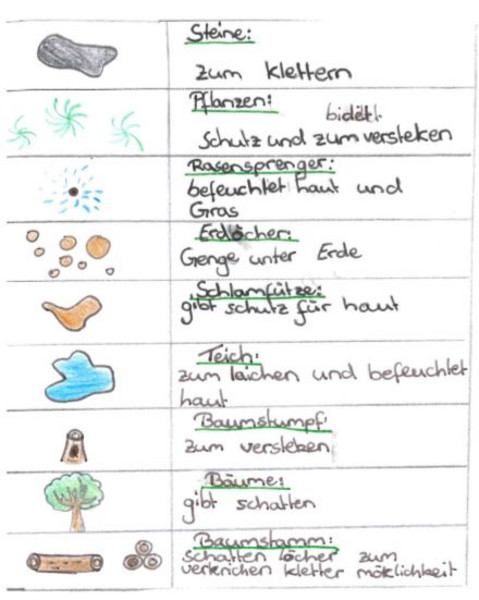 Steine:
zum klettern
Pflanzen:
bidet
Schutz und zum versteken
Rasensprenger:
befeuchtet haut und
Gras
Erdlöcher:
Genge unter Erde
Schlamfütze:
gibt schutz für haut
Teich:
zum laichen und befeuchtet
haut
Baumstumpf:
zum versteken
Bäume:
gibt schatten
Baumstamm:
schatten löcher zum
verkrichen kletter möklichkeit